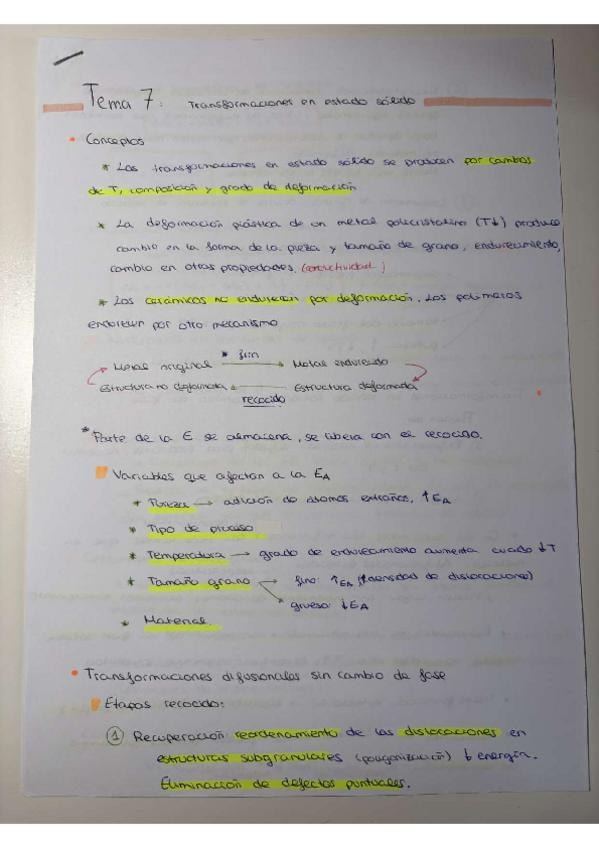 Tema 7: Transformaciones en estado sólido
• Conceptos
* Las transformaciones en estado sólido se producen por cambios
de T, composición y grado de deformación
* La deformación plástica de un metal policristalino (T↓) produce
cambio en la forma de la pieza y tamaño de grano, endurecimiento,
cambio en otras propiedades. (conductividad)
* Los cerámicos no endurecen por deformación. Los polímeros
endurecen por otro mecanismo
Metal original * frío → Metal endurecido
Estructura no deformada ← Estructura deformada
recocido
* Parte de la E se almacena, se libera con el recocido.
Variables que afectan a la EA
* Pureza → adición de átomos extraños, ↑EA
* Tipo de proceso
* Temperatura → grado de endurecimiento aumenta cuado ↓T
* Tamaño grano → fino: ↑EA (↑densidad de dislocaciones)
grueso: ↓EA
* Material.
• Transformaciones difusionales sin cambio de fase
Etapas recocido:
① Recuperación reordenamiento de las dislocaciones en
estructuras subgranulares (poligonización) ↓ energía.
Eliminación de defectos puntuales.